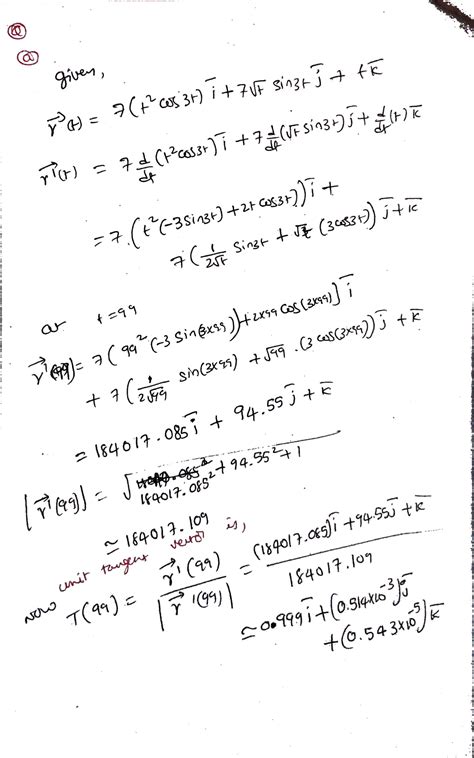 (a)
given,
r⃗(t) = 7(t² cos 3t) i̅ + 7√t sin3t j̅ + t k̅
r⃗'(t) = 7 d/dt (t² cos3t) i̅ + 7 d/dt (√t sin3t) j̅ + d/dt (t) k̅
= 7 (t² (-3 sin3t) + 2t cos3t)) i̅ +
7 (1/2√t sin3t + √t (3 cos3t)) j̅ + k̅
at t = 99
r⃗'(99) = 7 (99² (-3 sin(3×99)) + 2×99 cos(3×99)] i̅
+ 7 (1/2√99 sin(3×99) + √99 · (3 cos(3×99)) j̅ + k̅
= 184017.085 i̅ + 94.55 j̅ + k̅
|r⃗'(99)| = √184017.085² + 94.55² + 1
≃ 184017.109
now unit tangent vector is,
T(99) = r⃗'(99) / |r⃗'(99)| = (184017.085) i̅ + 94.55 j̅ + k̅ / 184017.109
≃ 0.999 i̅ + (0.514×10⁻³) j̅
+ (0.543×10⁻⁵) k̅